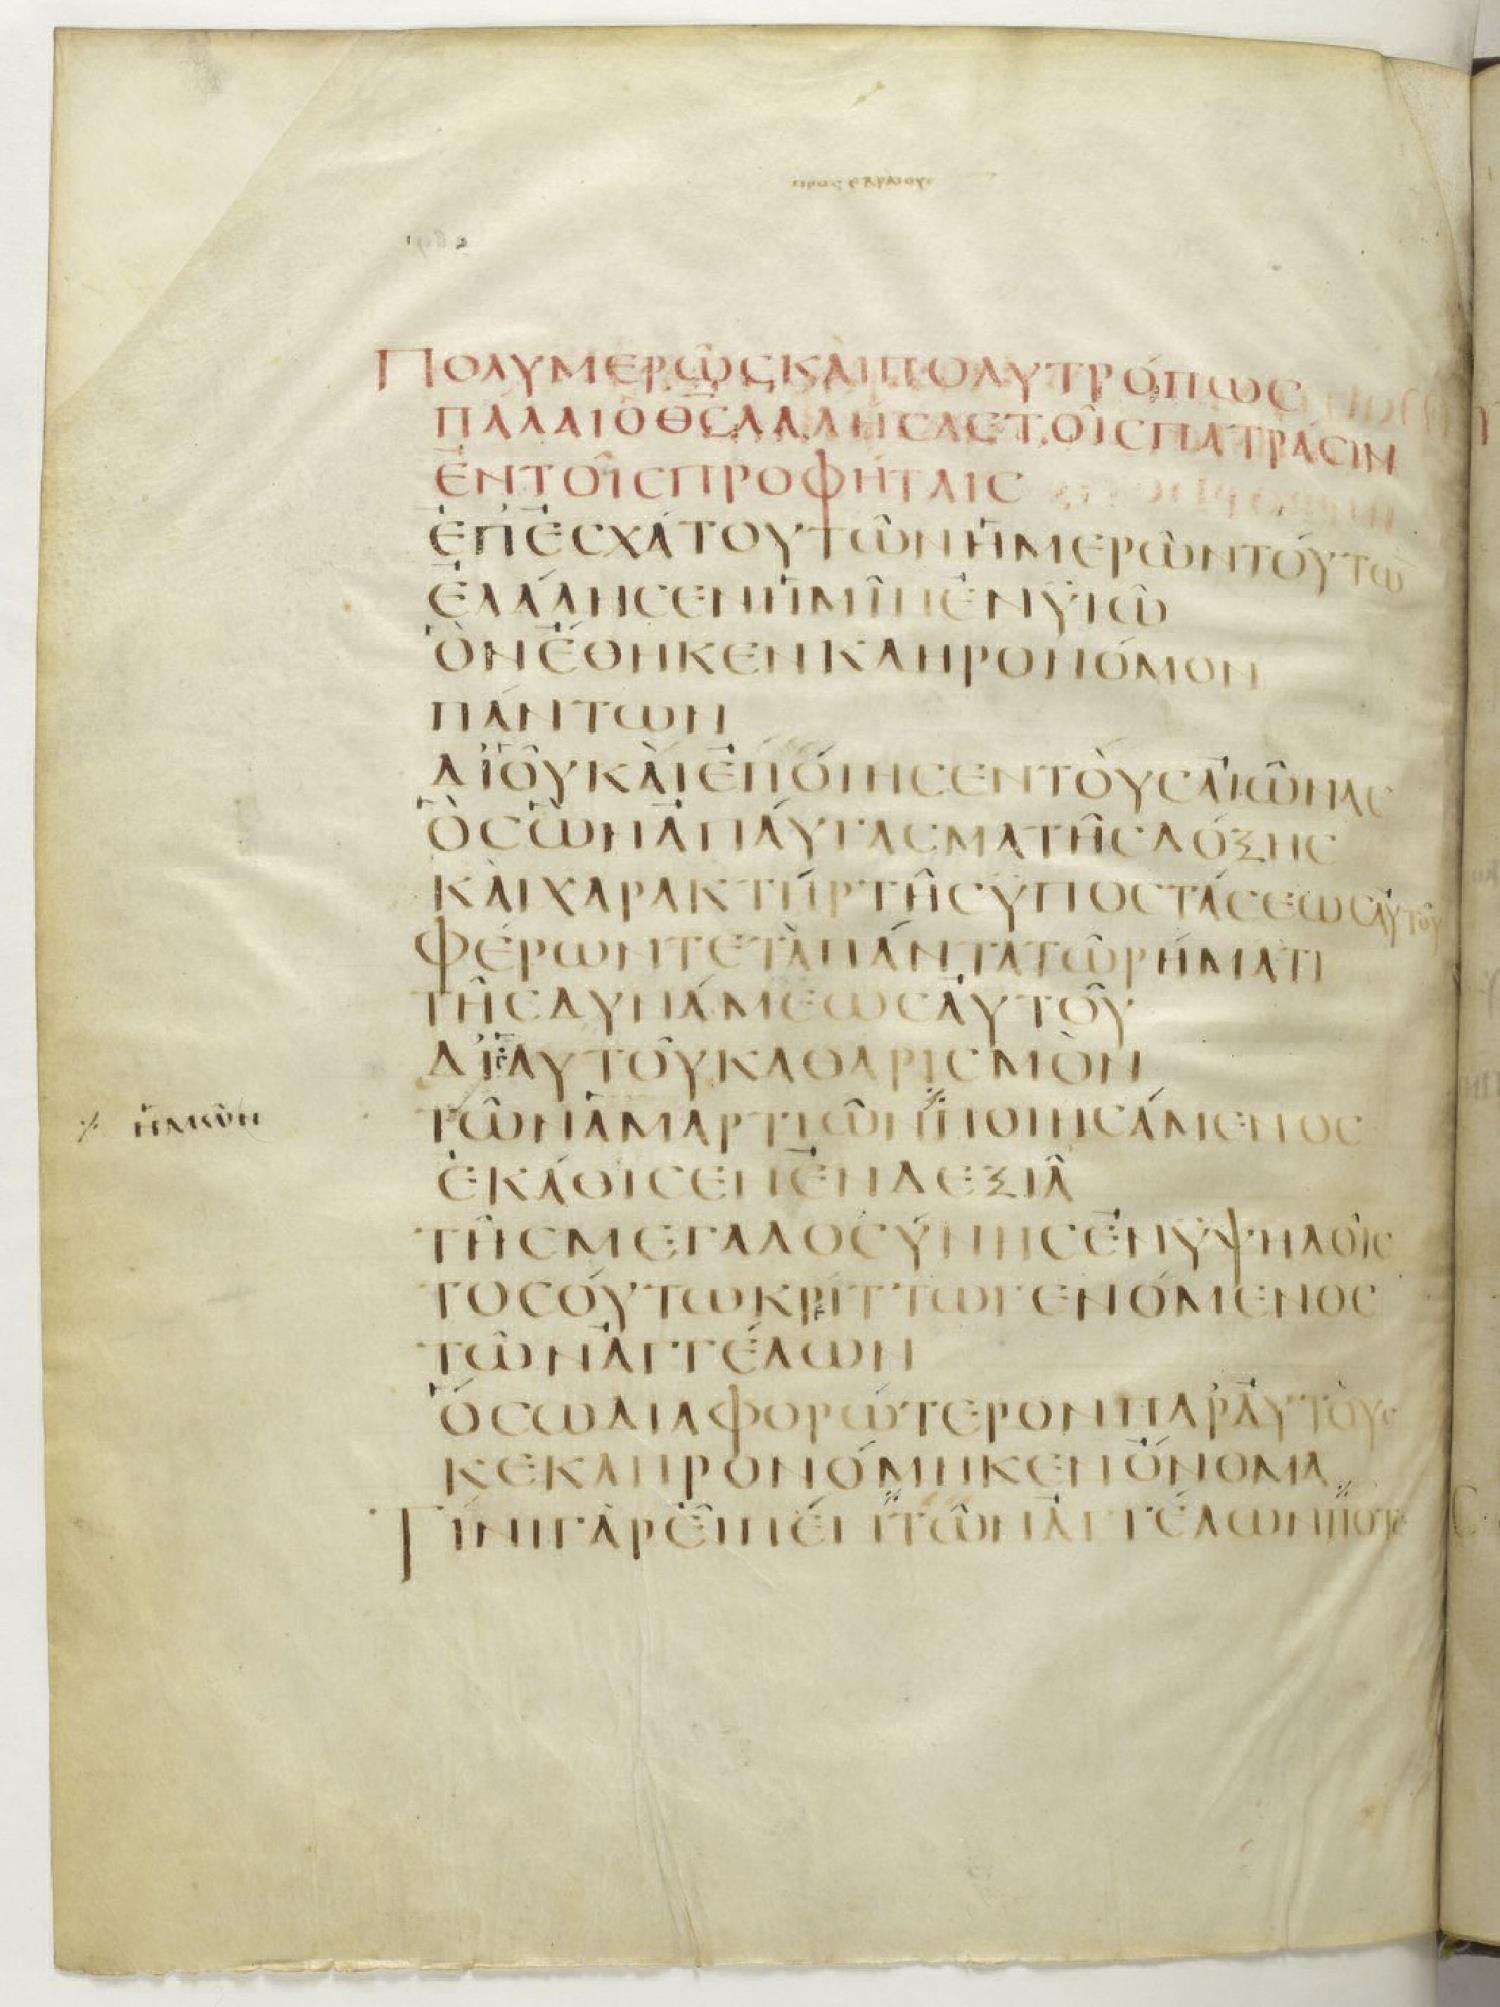 προς εβραιους
Πολυμερῶς κὰι πολυτρόπως
πάλαι ὁ θ̅ς̅ λαλήσας τοῖς πατράσιν
ἐν τοῖς προφήταις
ἐπ' ἐσχάτου τῶν ἡμερῶν τόυτω̅
ἐλάλησεν ἡμῖν ἐν ϋιῶ
ὃν ἔθηκεν κληρονόμον
πάντων
δι' ὅυ κὰι ἐπόιησεν τὸυς αἰῶνας
ὃς ὢν ἀπάυγασμα τῆς δόξης
κὰι χαρακτήρ τῆς ϋποστάσεως αὐτοῦ
φέρων τε τὰ πάντα τῶ ρήματι
τῆς δυνάμεως ἀυτοῦ
δι' ἑαυτοῦ καθαρισμὸν
τῶν ἁμαρτιῶν ποιησάμενος
⁒ ἡμῶν
ἐκάθισεν ἐν δεξιᾶ
τῆς μεγαλοσύνης ἐν ϋψηλοῖς
τοσόυτω κρίττω γενόμενος
τῶν ἀγγέλων
ὅσω διαφορώτερον παρ' ἀυτὸυς
κεκληρονόμηκεν ὄνομα
Τίνι γὰρ εἶπέν τῶν ἀγγέλων ποτε